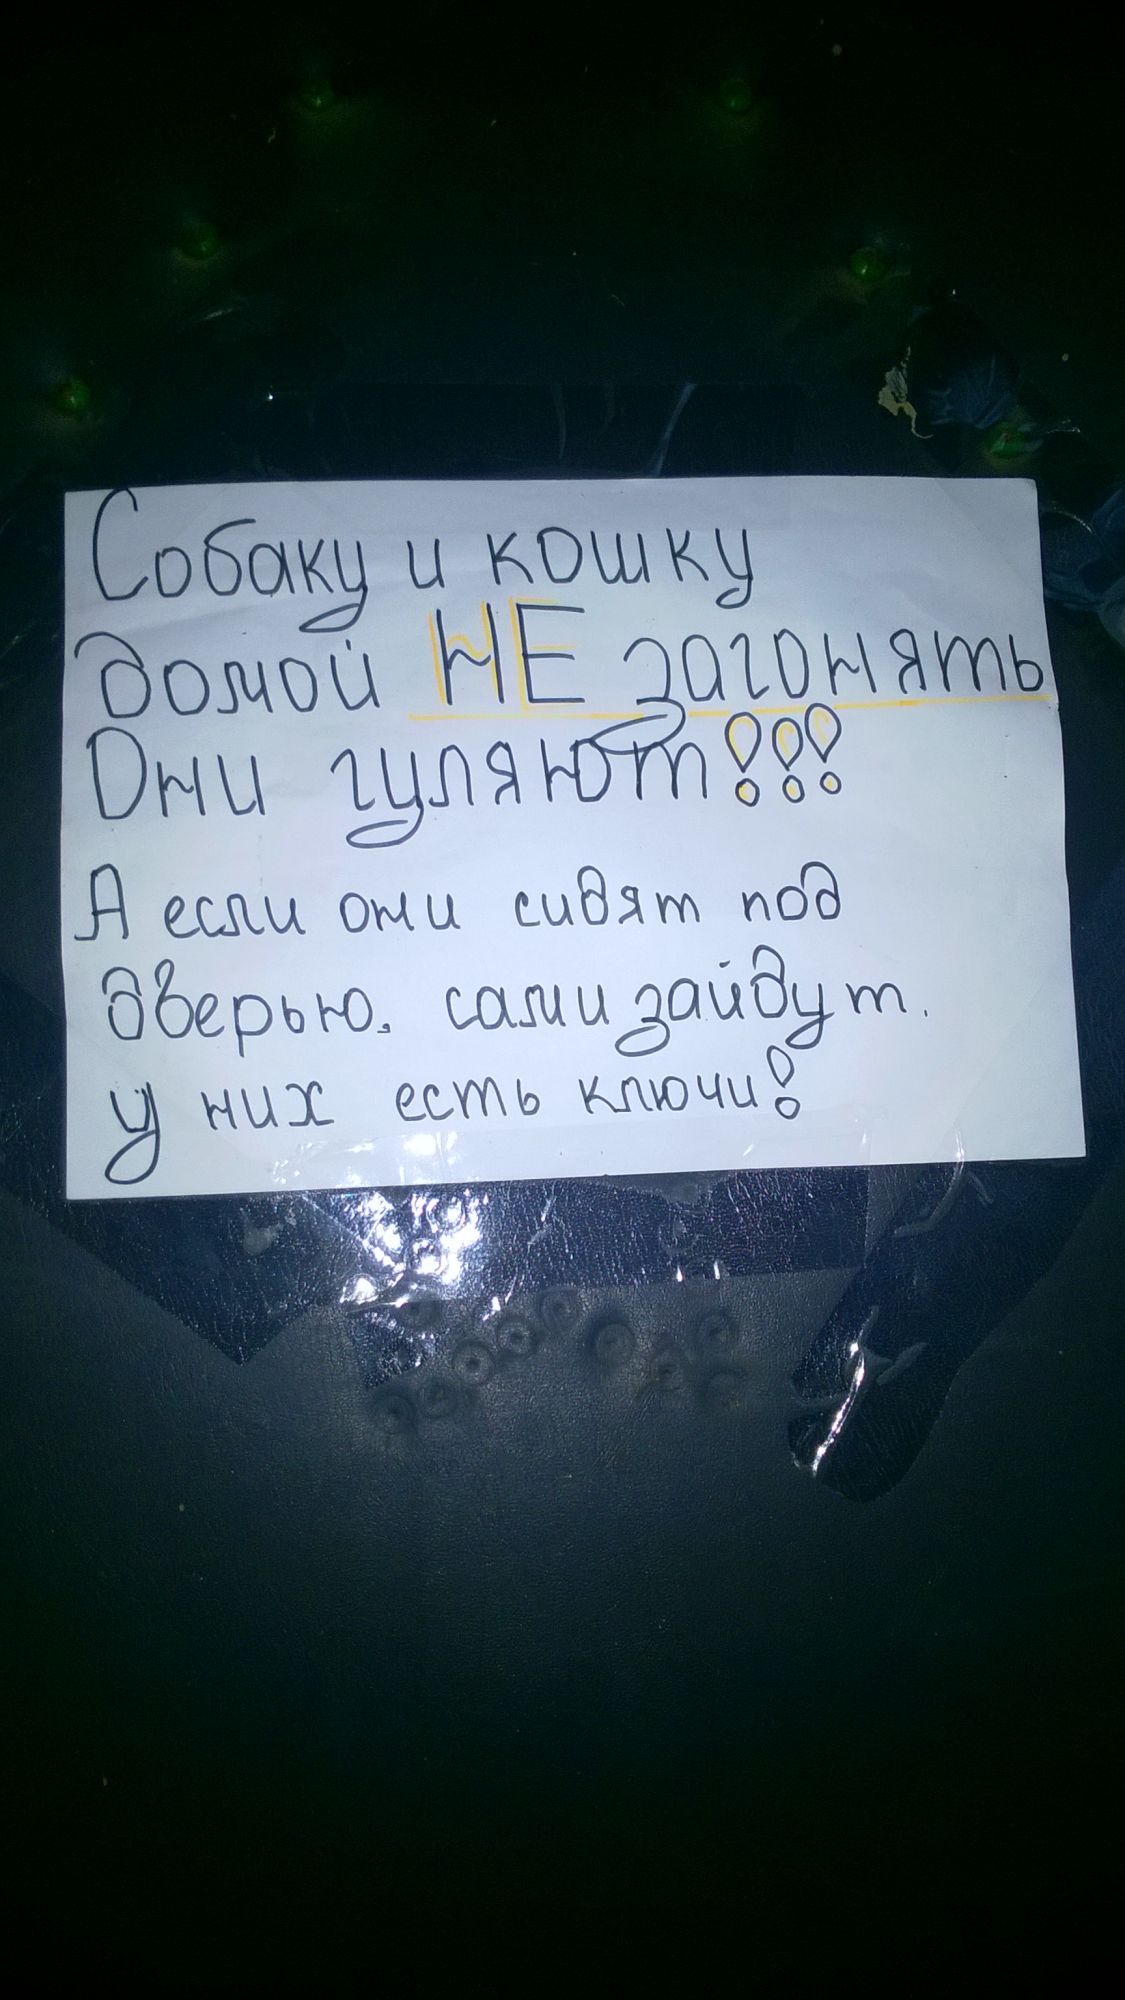 Собаку и кошку
домой НЕ загонять
Они гуляют!!!
А если они сидят под
дверью, сами зайдут.
у них есть ключи!